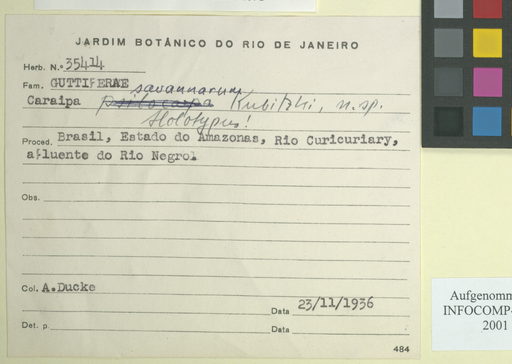 JARDIM BOTÂNICO DO RIO DE JANEIRO
Herb. N.º 35414
Fam. GUTTIFERAE savannarum
Caraipa psilocarpa Kubitzki, n.sp.
Holotypus!
Proced. Brasil, Estado do Amazonas, Rio Curicuriary,
afluente do Rio Negro.
Obs.
Col. A.Ducke
Data 23/11/1936
Det. p. Data
484
Aufgenomm
INFOCOMP-
2001